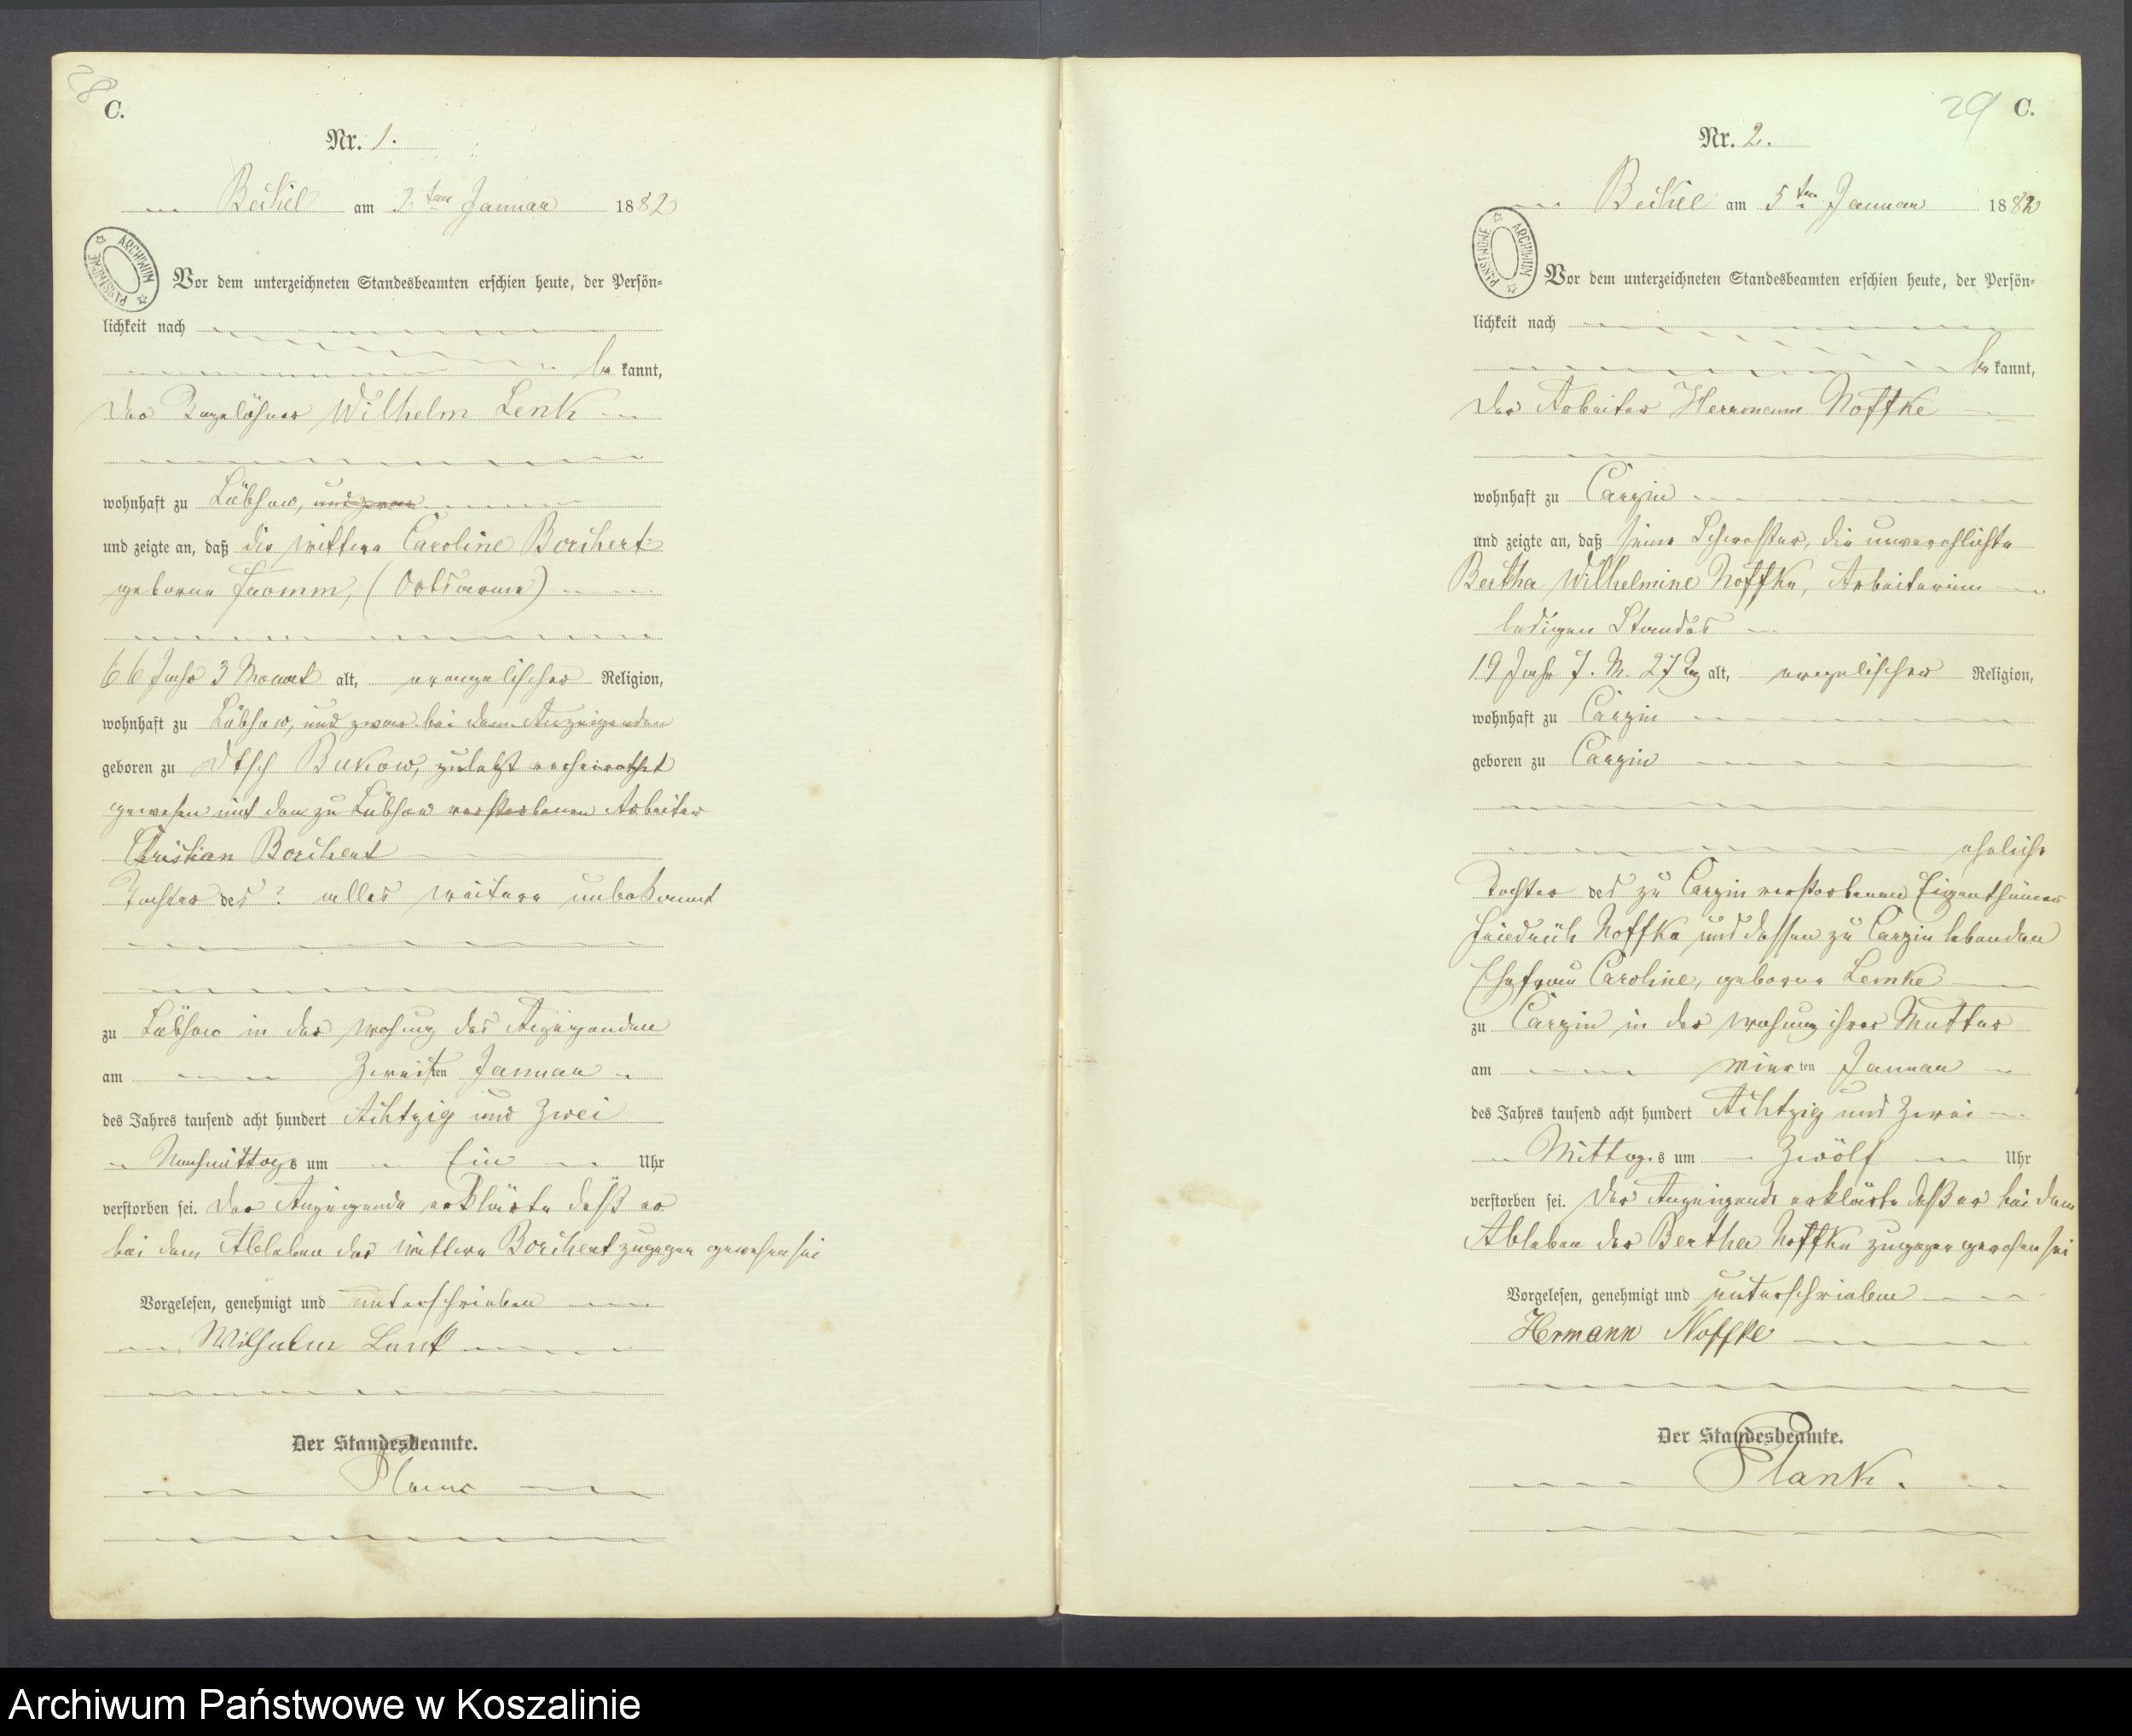 28
C.
Nr. 1.
Beckel am 2ten Januar 1882
ARCHIWUM PAŃSTWOWE
Vor dem unterzeichneten Standesbeamten erschien heute, der Persön-
lichkeit nach
be kannt,
der Tagelöhner Wilhelm Lenk
wohnhaft zu Lübsow, und zwar
und zeigte an, daß die Wittwe Caroline Borchert
geborne Fromm, (Ortsarme)
66 Jahr 3 Monat alt, evangelischer Religion,
wohnhaft zu Lübsow, und zwar bei dem Anzeigenden
geboren zu Dtsch Bukow, zuletzt verheirathet
gewesen mit dem zu Lübsow verstorbenen Arbeiter
Christian Borchert
Tochter des ? alles weitere unbekannt
zu Lübsow in der Wohnung des Anzeigenden
am Zweiten Januar
des Jahres tausend acht hundert Achtzig und Zwei
Nachmittags um Ein Uhr
verstorben sei. Der Anzeigende erklärte daß er
bei dem Ableben der Wittwe Borchert zugegen gewesen sei
Vorgelesen, genehmigt und unterschrieben
Wilhelm Lenk
Der Standesbeamte.
Plank
29 C.
Nr. 2.
Beckel am 5ten Januar 1882
ARCHIWUM PAŃSTWOWE
Vor dem unterzeichneten Standesbeamten erschien heute, der Persön-
lichkeit nach
be kannt,
der Arbeiter Herrmann Noffke
wohnhaft zu Carzin
und zeigte an, daß seine Schwester, die unverehlichte
Bertha Wilhelmine Noffke, Arbeiterin
ledigen Standes
19 Jahr 7. M. 27 Tag alt, evangelischer Religion,
wohnhaft zu Carzin
geboren zu Carzin
eheliche
Tochter des zu Carzin verstorbenen Eigenthümer
Friedrich Noffke und dessen zu Carzin lebenden
Ehefrau Caroline, geborne Lemke
zu Carzin in der Wohnung ihrer Mutter
am Vierten Januar
des Jahres tausend acht hundert Achtzig und Zwei
Mittags um Zwölf Uhr
verstorben sei. Der Anzeigende erklärte daß er bei dem
Ableben der Bertha Noffke zugegen gewesen sei
Vorgelesen, genehmigt und unterschrieben
Hermann Noffke
Der Standesbeamte.
Plank.
Archiwum Państwowe w Koszalinie